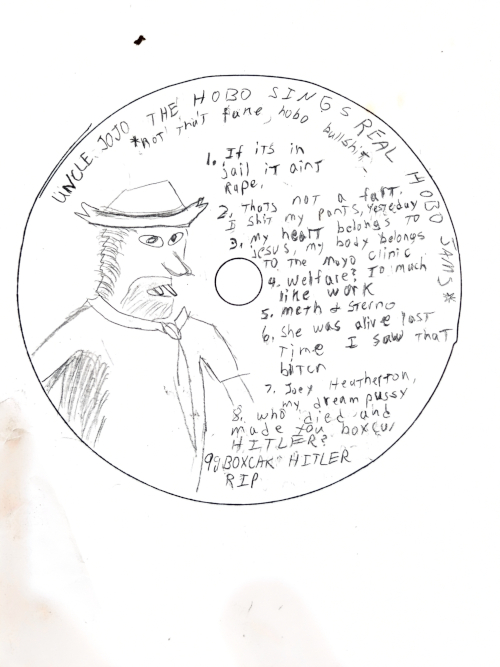 UNCLE JOJO THE HOBO SINGS REAL HOBO JAMS*
*NOT That fake hobo bullshit
1. If its in
jail iT ainT
Rape.
2. Thats not a fart.
I shit my pants, yesteday
3. my heart belongs TO
JESUS, my body belongs
TO The Mayo Clinic
4. welfare? To much
like work
5. meth & sterno
6. She was alive last
Time I saw that
bitch
7. Joey Heatherton,
my dream pussy
8. who died and
made you boxcar
HITLER?
9. BOXCAR HITLER
RIP